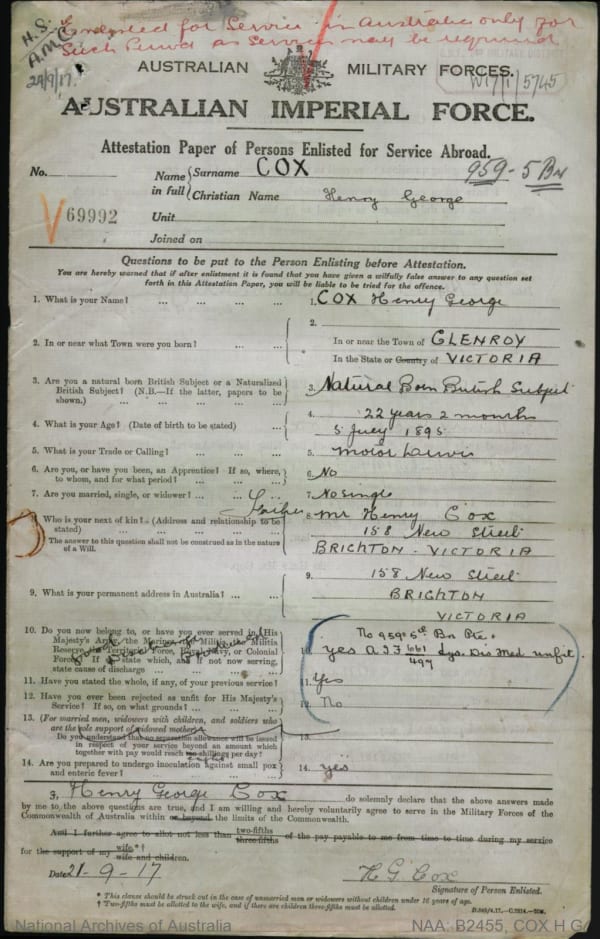 Enlisted for Service in Australia only for
Such Period as Services may be required
H.S.
A.M.C
21/9/17.
W17/1/5745
AUSTRALIAN MILITARY FORCES.
AUSTRALIAN IMPERIAL FORCE.
Attestation Paper of Persons Enlisted for Service Abroad.
No. Name in full Surname COX 959 - 5 Bn
Christian Name Henry George
69992 Unit
Joined on
Questions to be put to the Person Enlisting before Attestation.
You are hereby warned that if after enlistment it is found that you have given a wilfully false answer to any question set
forth in this Attestation Paper, you will be liable to be tried for the offence.
1. What is your Name? ... ... ... ... 1. COX Henry George
2. In or near what Town were you born? ... ... 2.
In or near the Town of GLENROY
In the State or County of VICTORIA
3. Are you a natural born British Subject or a Naturalized
British Subject? (N.B.—If the latter, papers to be
shown.) ... ... ... ... 3. Natural Born British Subject
4. What is your Age? (Date of birth to be stated) ... 4. 22 years 2 months
5 July 1895
5. What is your Trade or Calling? ... ... ... 5. Motor Driver
6. Are you, or have you been, an Apprentice? If so, where,
to whom, and for what period? ... ... ... 6. No
7. Are you married, single, or widower? ... ... 7. No single
Father
8. Who is your next of kin? (Address and relationship to be
stated) ... ... ... 8. Mr Henry Cox
158 New Street
BRIGHTON - VICTORIA
The answer to this question shall not be construed as in the nature
of a Will.
9. What is your permanent address in Australia? ... ... 9. 158 New Street
BRIGHTON
VICTORIA
10. Do you now belong to, or have you ever served in, His
Majesty's Army, the Marines, the Militia, the Militia
Reserve, the Territorial Force, Royal Navy, or Colonial
Forces? If so, state which, and if not now serving,
state cause of discharge ... ... ...
No 959 5th Bn Pte.
10. yes A I F 661/497 Dys. Dis Med unfit.
11. Have you stated the whole, if any, of your previous service? 11. Yes
12. Have you ever been rejected as unfit for His Majesty's
Service? If so, on what grounds? ... ... 12. No
13. (For married men, widowers with children, and soldiers who
are the sole support of widowed mother)
Do you understand that no separation allowance will be issued
in respect of your service beyond an amount which
together with pay would reach eight shillings per day? 13.
14. Are you prepared to undergo inoculation against small pox
and enteric fever? ... ... ... 14. yes
I, Henry George Cox do solemnly declare that the above answers made
by me to the above questions are true, and I am willing and hereby voluntarily agree to serve in the Military Forces of the
Commonwealth of Australia within or beyond the limits of the Commonwealth.
And I further agree to allot not less than two-fifths three-fifths of the pay payable to me from time to time during my service
for the support of my wife*† wife and children.
Date 21-9-17
H G Cox
Signature of Person Enlisted.
* This clause should be struck out in the case of unmarried men or widowers without children under 16 years of age.
† Two-fifths must be allotted to the wife, and if there are children three-fifths must be allotted.
National Archives of Australia
NAA: B2455, COX H G